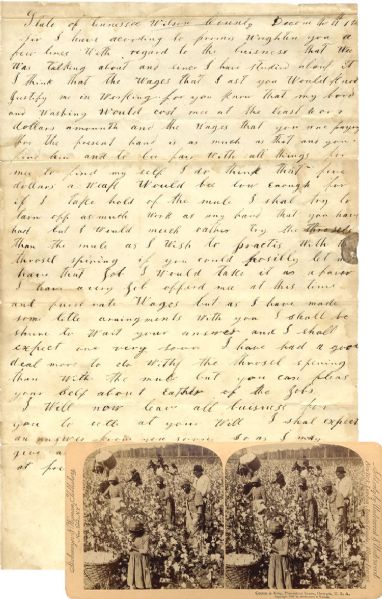 State of Tennessee Wilson County
Sir I have acording to promis wrighten you a
few lines With regard to the buisness that We
Was talking about and since I have studied about it
I think that the Wages that I ast you Would
Justify me in Working for you know that my bord
and Washing Would cost me at the least
dollars a month and the Wages that you are paying
for the present hand is as much as that
and to be fair With all things for
me to find my self I do think that five
dollars a Weak Would be low enough for
if I take hold of the mule I shal try to
turn off as much Work as any hand that you have
had but I Would much rather try the throssel
than the mule as I Wish to practis With the
throssel spining if you could possibly let me
have that Job I Would take it as a favor
I have a very Job offerd me at this time
and Wages but as I have made
some little arraingments With you I shall be
to Wait your answer and I shall
expect one very soon I have had a good
deal more to do With the throssel spining
than With the mule but you can pleas
your self about Eather of the Jobs
I Will now leave all buisness for
you to at your Will I shal expect
an answer from you soon so as I may
give
at
Strohmeyer & Wyman, Publishers,
New York, N.Y.
Underwood & Underwood
Cotton is King, Plantation Scene, Georgia, U.S.A.